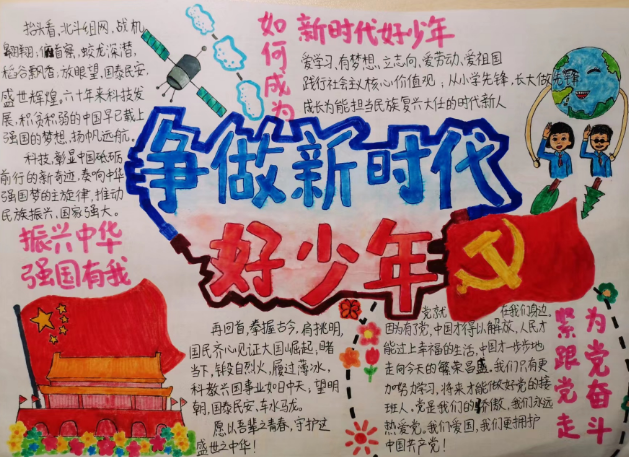 抬头看,北斗组网,战机
翱翔,蛟龙深潜,
稻谷飘香,放眼望,国泰民安,
盛世辉煌,六十年来科技发
展,积贫积弱的中国早已载上
强国的梦想,扬帆远航。
科技,彰显中国砥砺
前行的新奇迹,奏响中华
强国梦的主旋律,推动
民族振兴,国家强大。
振兴中华
强国有我
如何成为
新时代好少年
爱学习,有梦想,立志向,爱劳动,爱祖国
践行社会主义核心价值观;从小学先锋,长大做先锋
成长为能担当民族复兴大任的时代新人
争做新时代
好少年
再回首,奉握古今,肩扰明,
国民齐心见证大国崛起,睹
当下,锋毅自烈火,雁过薄冰,
科教兴国事业如日中天,望明
朝,国泰民安,车水马龙。
愿以吾辈之青春,守护这
盛世之中华!
党就在我们身边,
因为有了党,中国才得以解放,人民才
能过上幸福的生活,中国才一步步地
走向今天的繁荣昌盛。我们只有更
加努力学习,将来才能做好党的接
班人。党是我们的骄傲,我们永远
热爱党。我们爱国,我们更拥护
中国共产党!
为党奋斗
紧跟党走